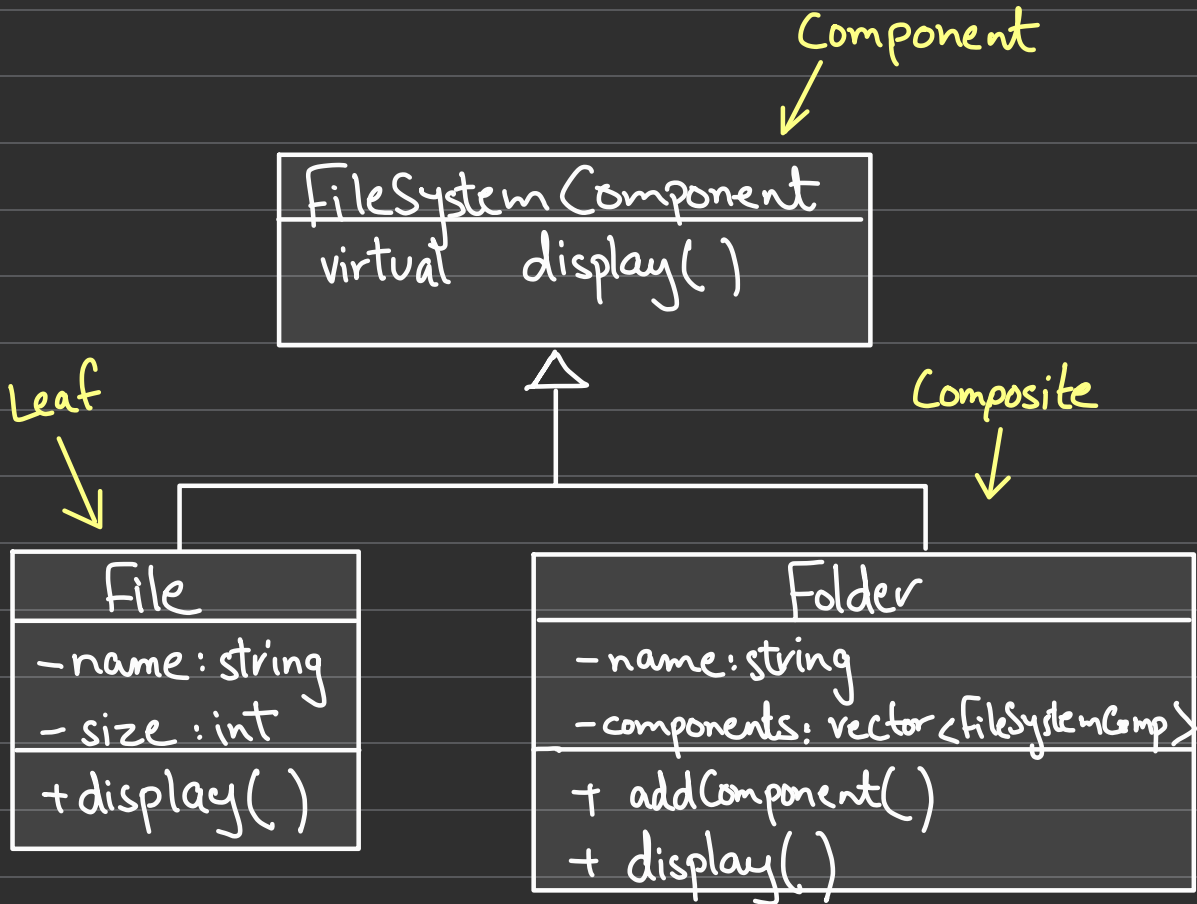 Component
FileSystemComponent
virtual display()
Leaf
Composite
File
- name: string
- size: int
+ display()
Folder
- name: string
- components: vector<FileSystemComp>
+ addComponent()
+ display()